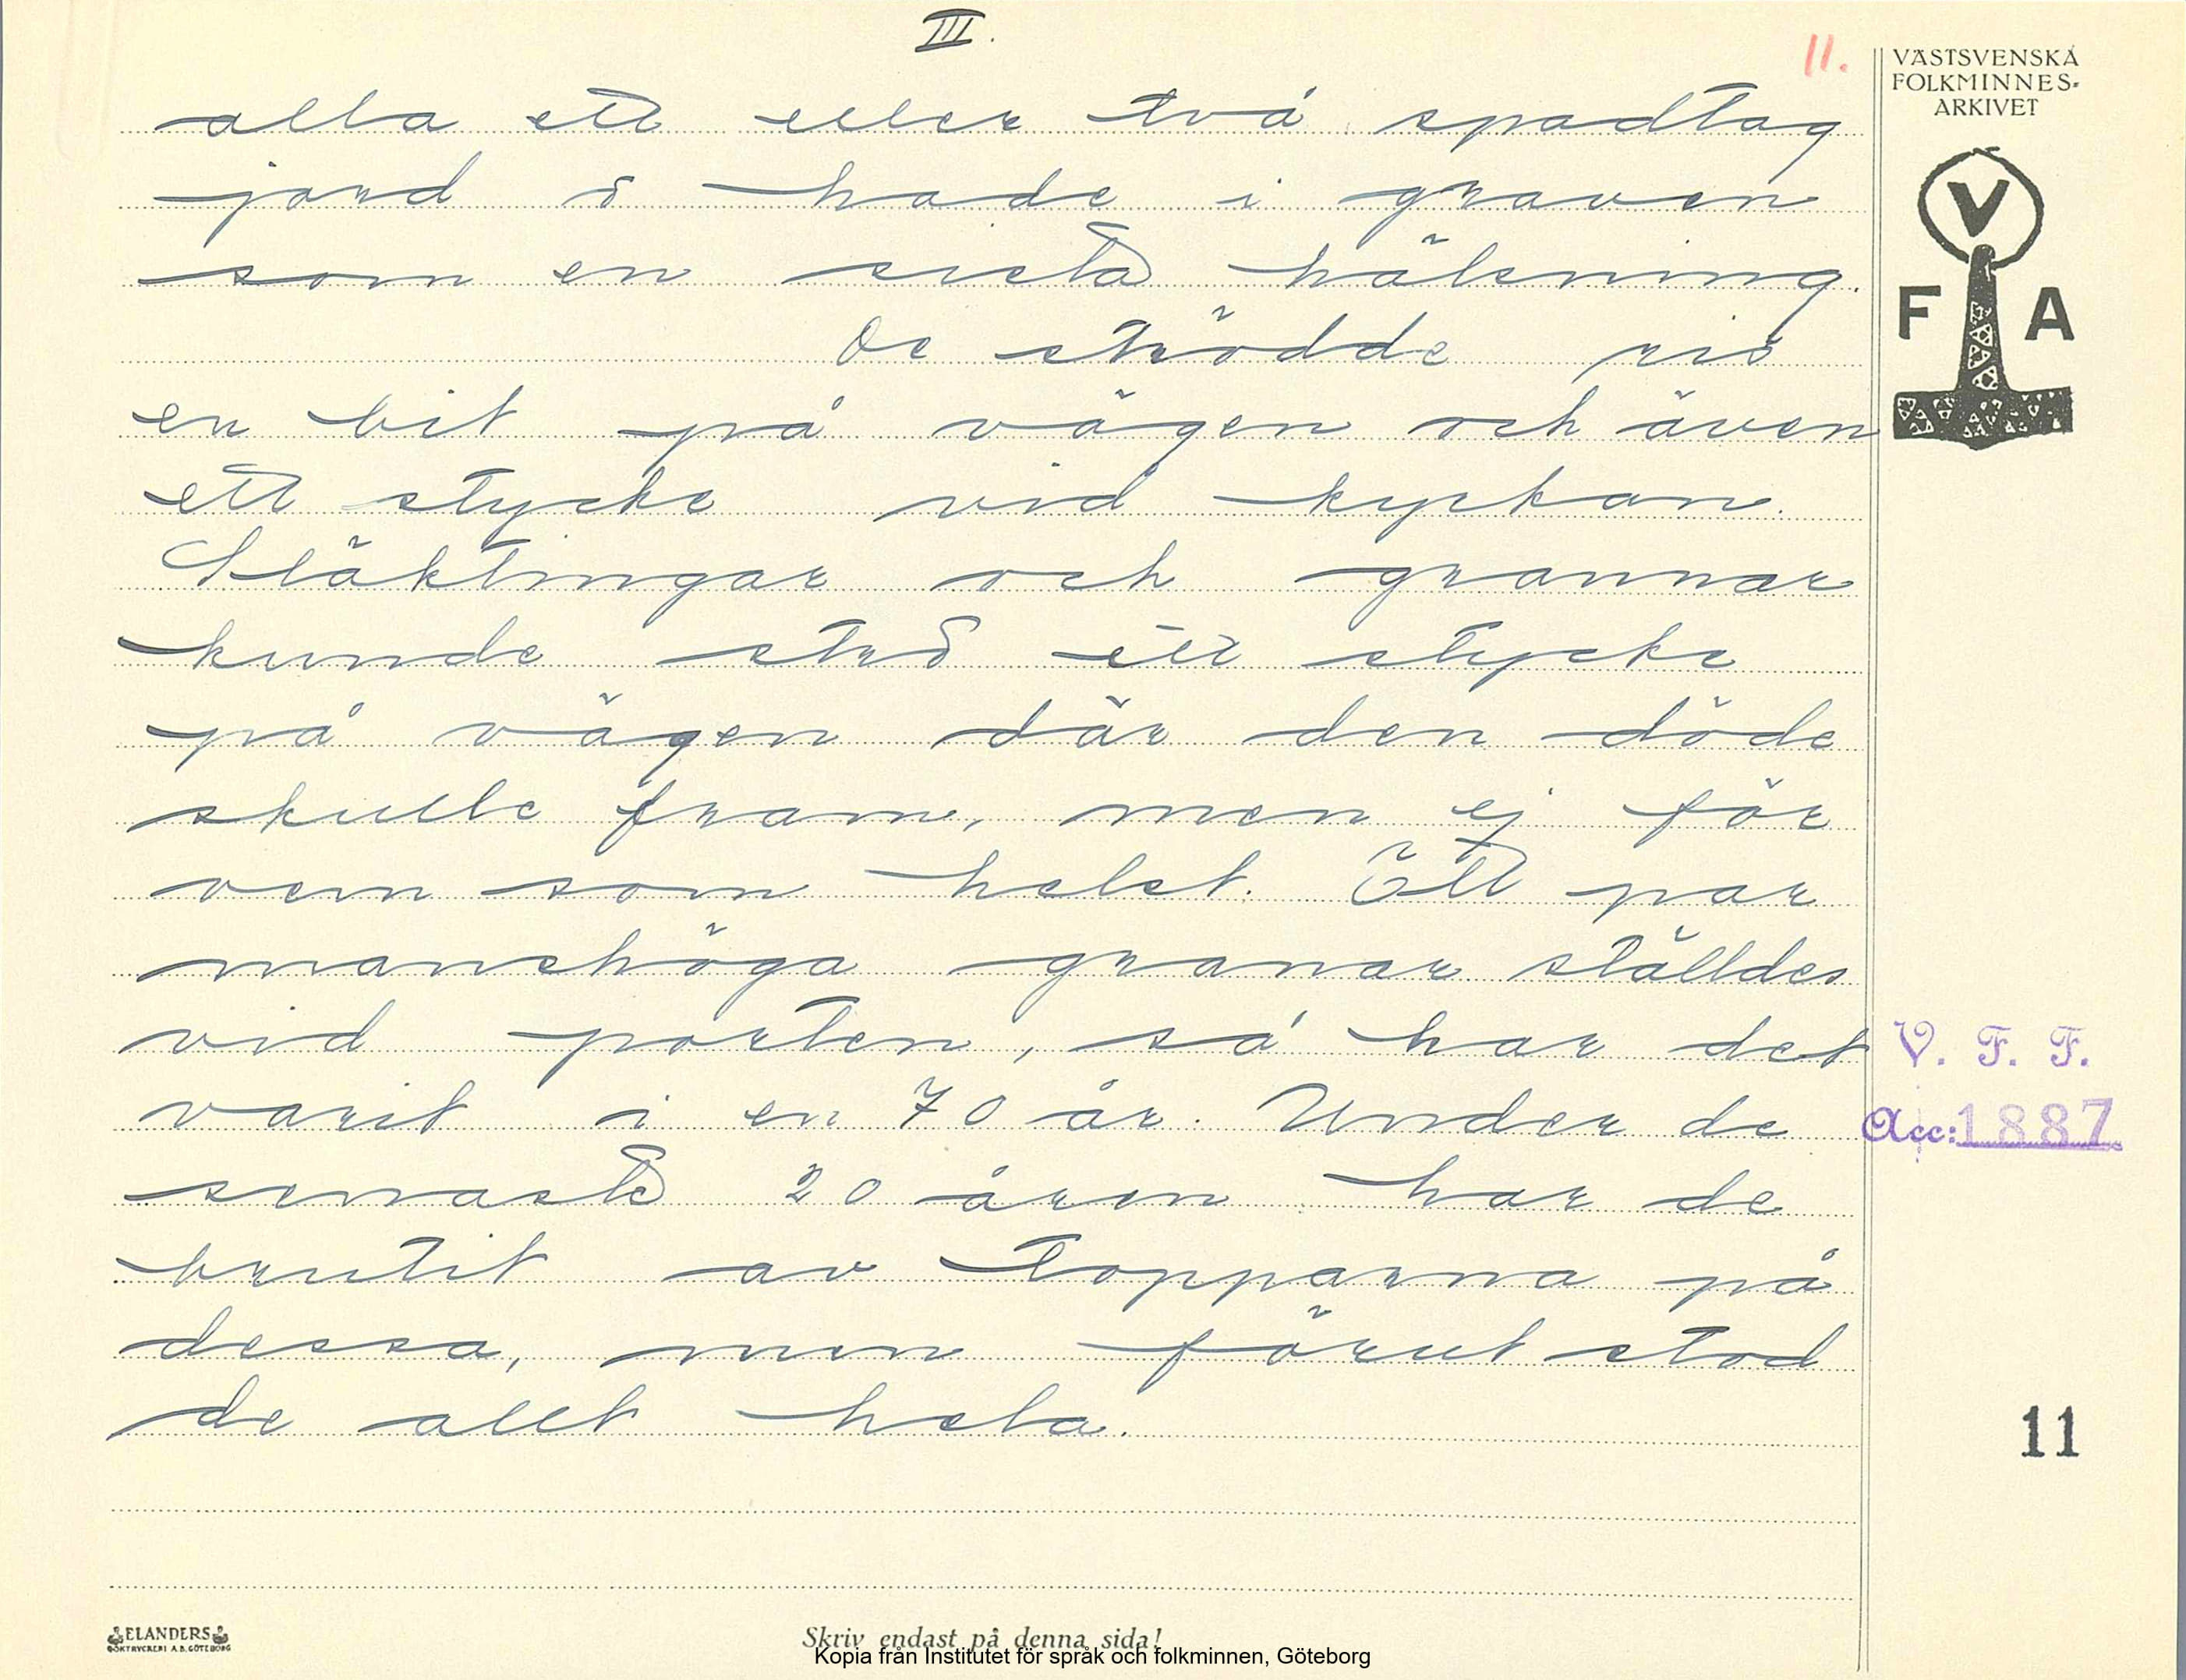 III.
11.
VÄSTSVENSKA
FOLKMINNES-
ARKIVET
V
F A
alla ett eller två spadtag
jord o hade i graven
som en sista hälsning.
De strödde ris
en bit på vägen och även
ett stycke vid kyrkan.
Släktingar och grannar
kunde strö ett stycke
på vägen där den döde
skulle fram, men ej för
vem som helst. Ett par
manshöga granar ställdes
vid porten, så har det
varit i en 70 år. Under de
senaste 20 åren har de
brutit av topparna på
dessa, men förut stod
de allt hela.
V. F. F.
Acc: 1887
11
ELANDERS
BOKTRYCKERI A.B. GÖTEBORG
Skriv endast på denna sida!
Kopia från Institutet för språk och folkminnen, Göteborg